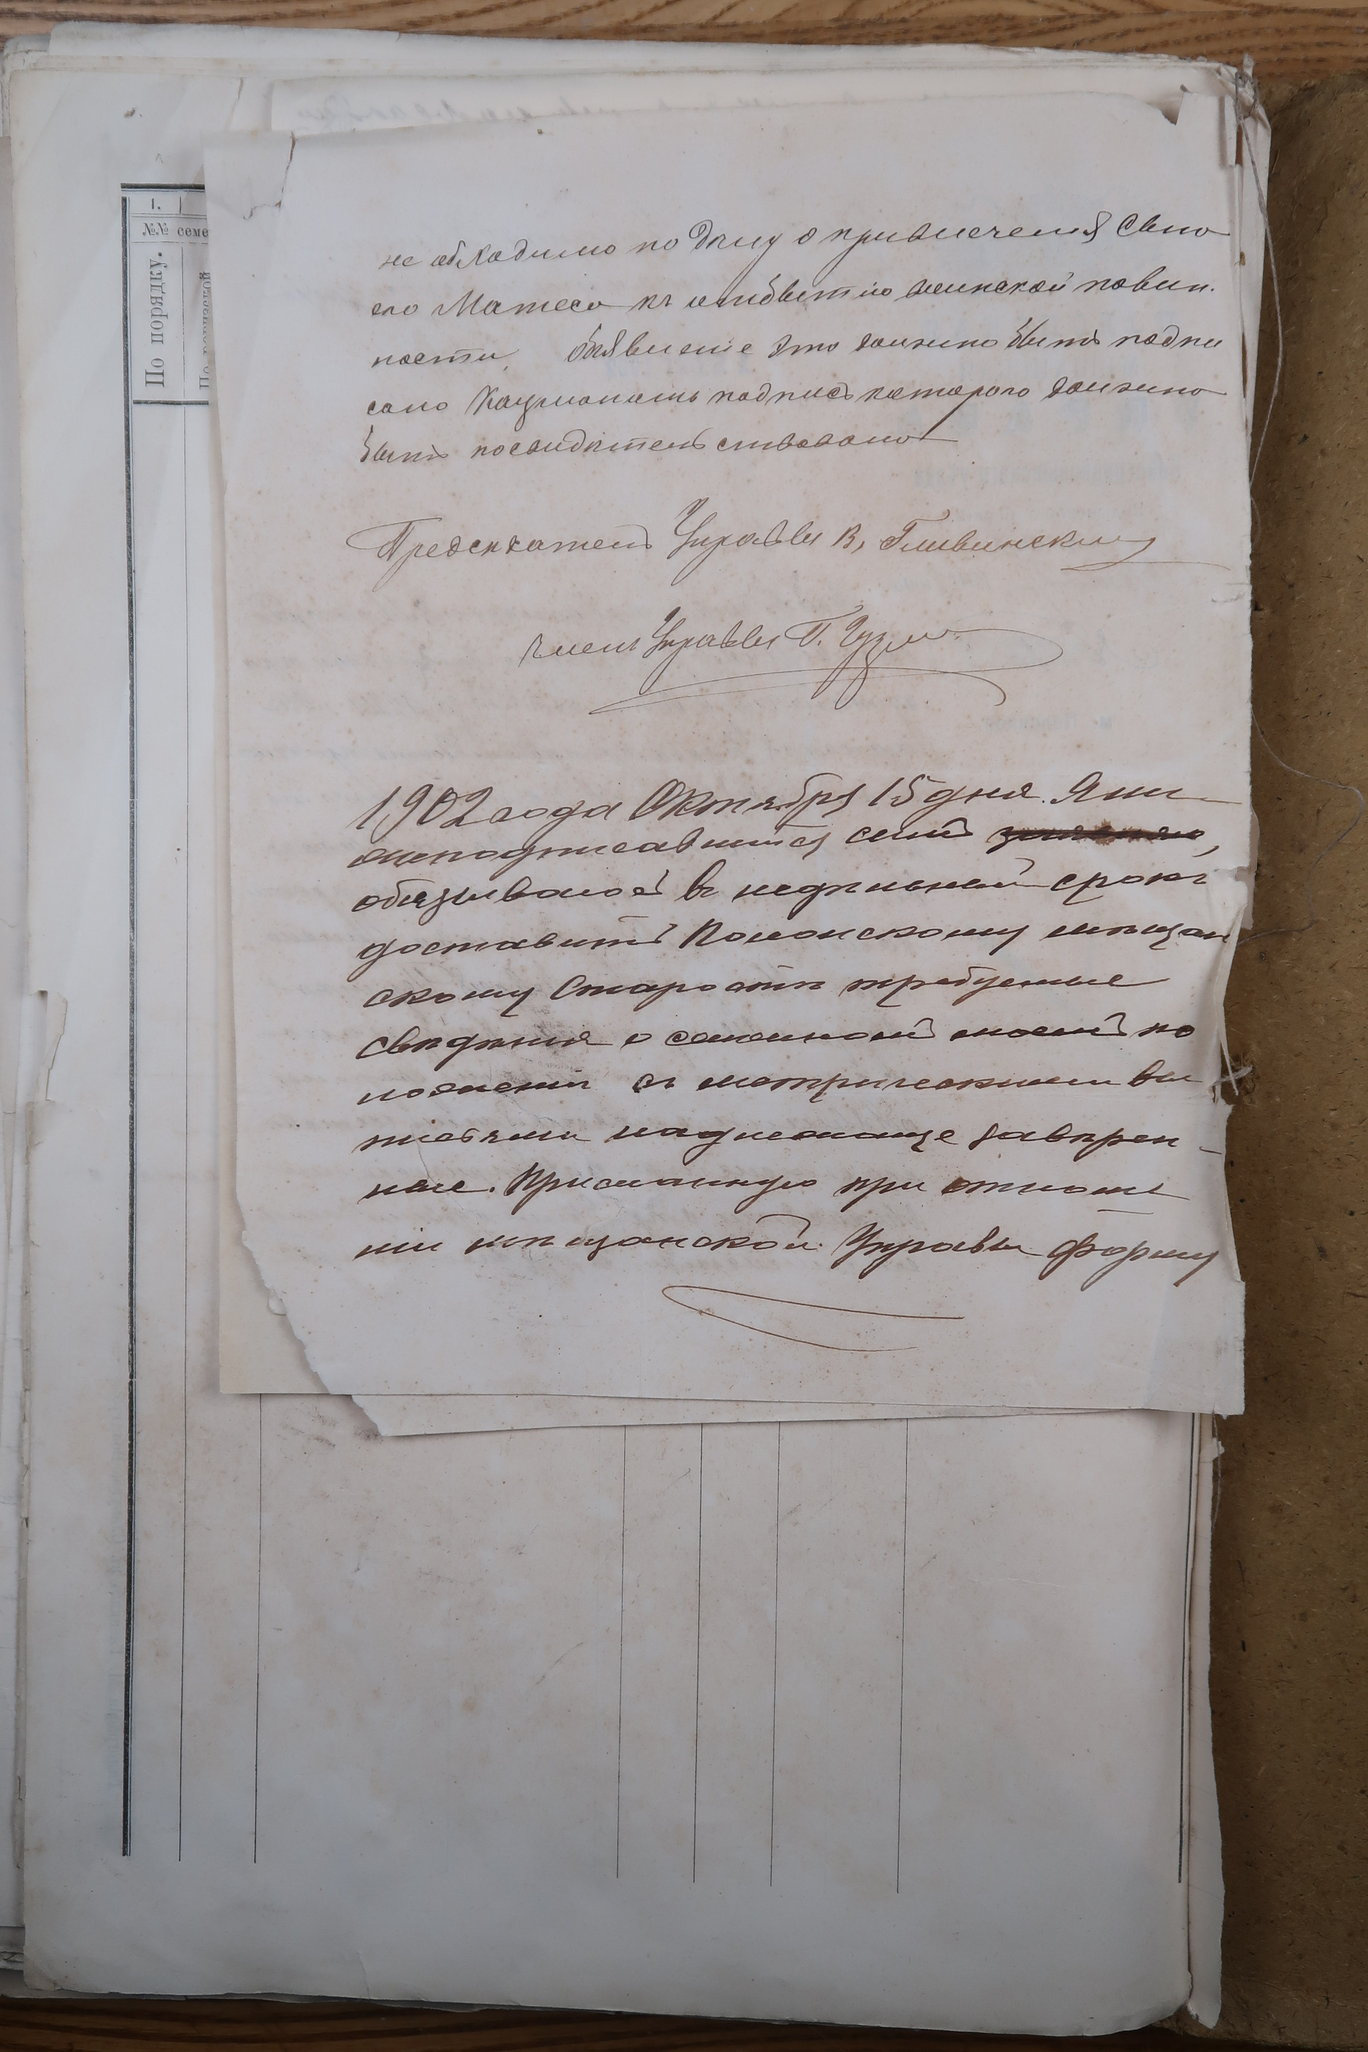 1.
№№ семе
По порядку.
не обходимо по делу о привлечения свое
его Матеса къ отбытію воинской повин.
ности, объявленіе это должно быть подпи
сано Кацманомъ подпись котораго должно
быть посвидѣтельствовано
Предсѣдатель Управы В. Гливинскій
Членъ Управы Г.
1902 года Октября 15 дня. Я ни
жеподписавшійся симъ
обязываюсь въ недѣльный срокъ
доставить Полонскому мѣщан
скому Старостѣ требуемые
сведѣнія о семейномъ моемъ по
ложеніи съ метрическими вы
писями надлежаще завѣрен-
ные. Присланную при отноше
ніи мѣщанской Управы форму